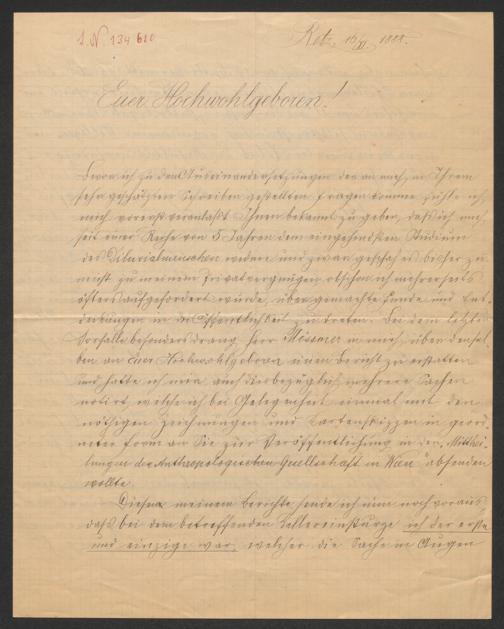 I. N. 134 610
Retz, 16/XI. 1888.
Euer Hochwohlgeboren!
Bevor ich zu den Auseinandersetzungen der an mich, in Ihrem
sehr geschätzten Schreiben gestellten Fragen komme fühle ich
mich vorerst veranlaßt Ihnen bekannt zu geben, daß ich mich
seit einer Reihe von 5 Jahren dem eingehendsten Studium
des Diluvialmenschen widme und zwar geschah es bisher zu
meist zu meinem Privatvergnügen obschon ich mehrerseits
öfters aufgefordert wurde, über gemachte Funde und Ent
deckungen in die Öffentlichkeit zu treten. Bei dem letzten
Vorfalle besonders drang Herr Messmer in mich, über densel
ben an Euer Hochwohlgeboren einen Bericht zu erstatten
und hatte ich mir auch diesbezüglich mehrere Sachen
notirt, welche ich bei Gelegenheit einmal mit den
nöthigen Zeichnungen und Kartenskizzen in geord
neter Form an Sie zur Veröffentlichung in den „Mitthei
lungen der Anthropologischen Gesellschaft in Wien" absenden
wollte.
Diesem meinem Berichte sende ich nun noch voraus,
daß bei dem betreffenden Kellereinsturze ich der erste
und einzige war, welcher die Sache in Augen